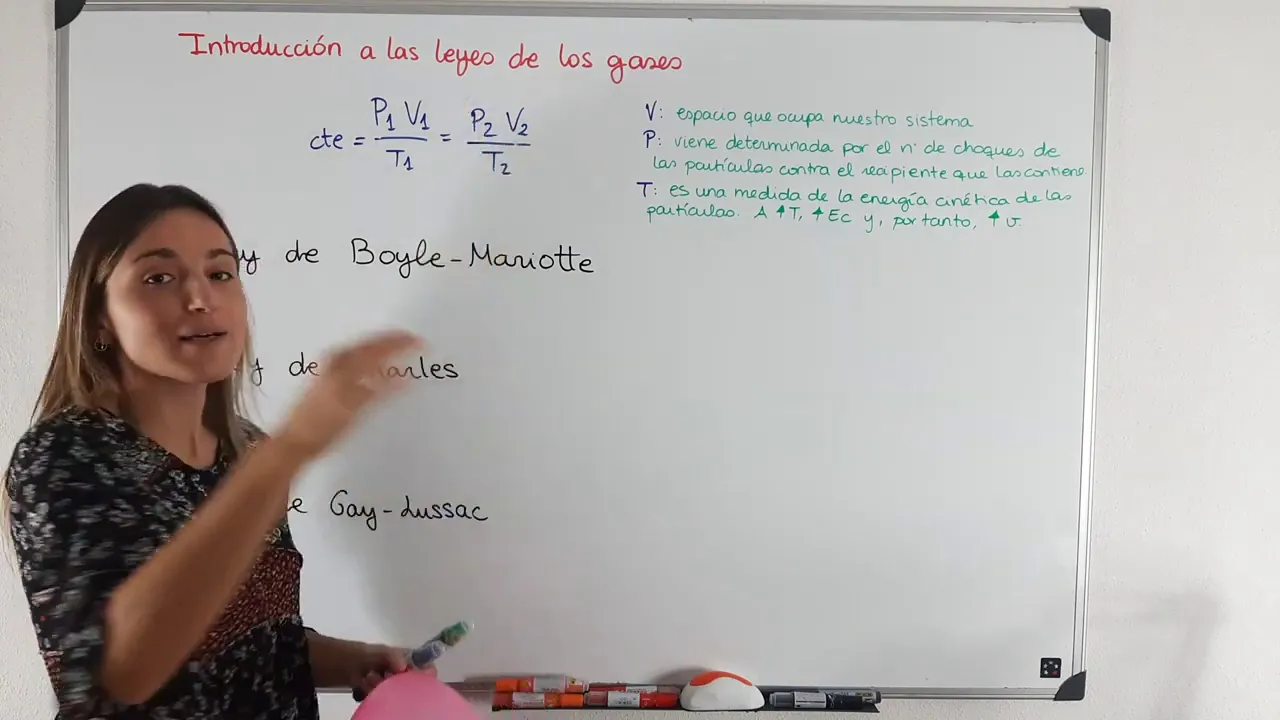 Introducción a las leyes de los gases
cte = P1 V1 / T1 = P2 V2 / T2
V: espacio que ocupa nuestro sistema
P: viene determinada por el nº de choques de
las partículas contra el recipiente que las contiene
T: es una medida de la energía cinética de las
partículas. A ↑T, ↑Ec y, por tanto, ↑v.
y de Boyle-Mariotte
y de Charles
e Gay-Lussac